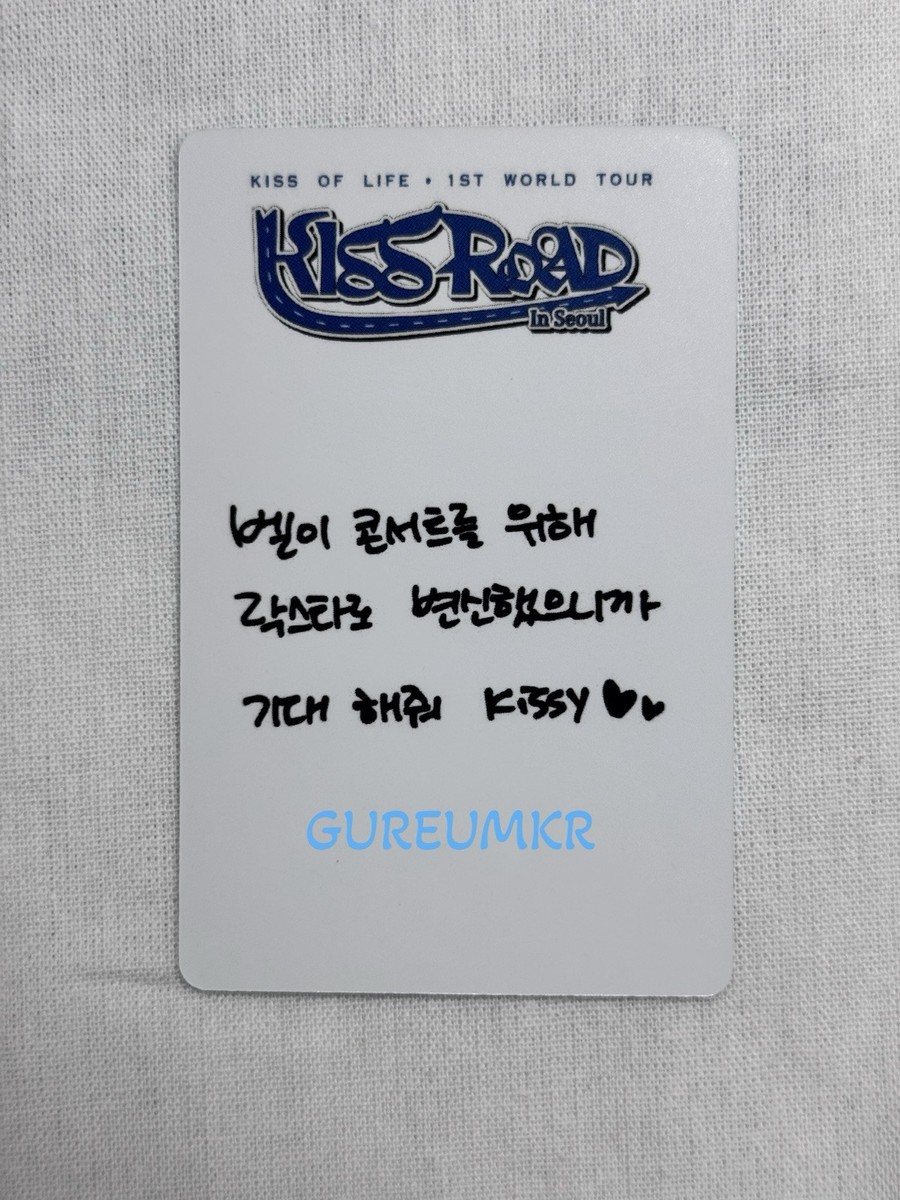 KISS OF LIFE • 1ST WORLD TOUR
KISS ROAD
In Seoul
벨이 콘서트를 위해
락스타로 변신했으니까
기대 해줘 KISSY ♥♥
GUREUMKR